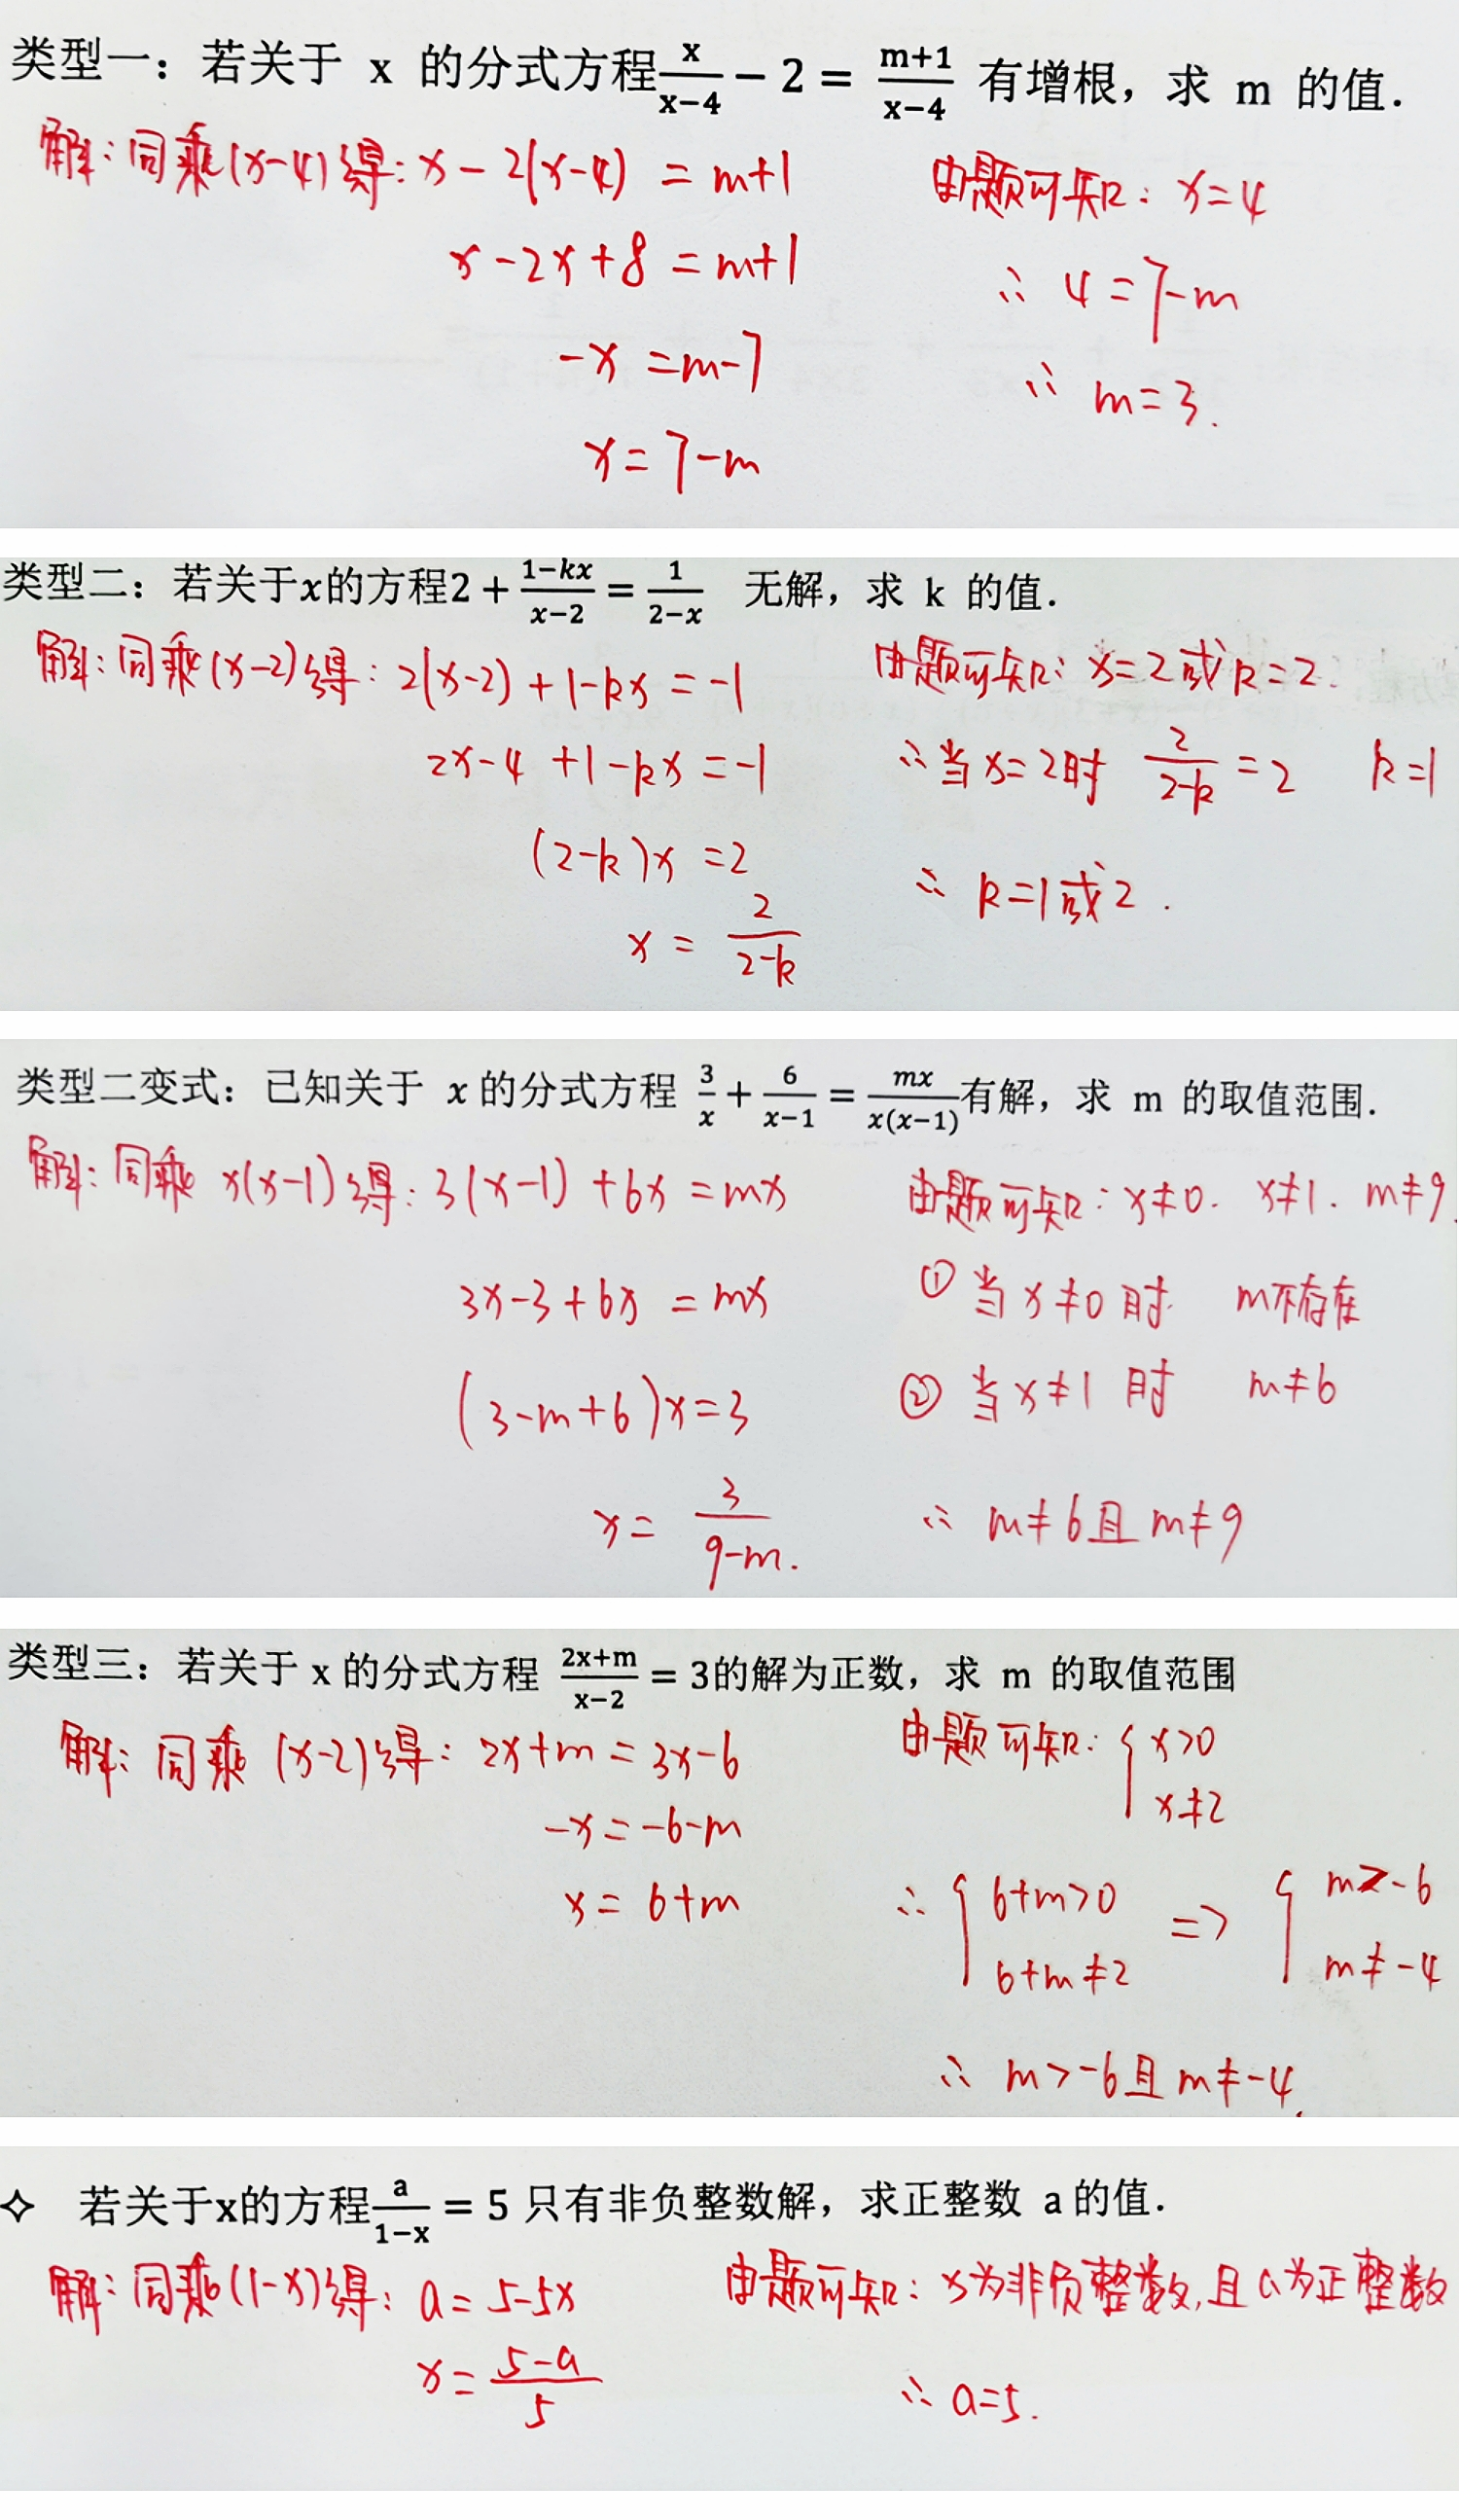 类型一：若关于 x 的分式方程 x/(x−4) − 2 = (m+1)/(x−4) 有增根，求 m 的值.
解：同乘(x-4)得：x-2(x-4) = m+1
x-2x+8 = m+1
-x = m-7
x = 7-m
由题可知：x=4
∴ 4=7-m
∴ m=3.
类型二：若关于x的方程2 + (1−kx)/(x−2) = 1/(2−x) 无解，求 k 的值.
解：同乘(x-2)得：2(x-2)+1-kx = -1
2x-4+1-kx = -1
(2-k)x = 2
x = 2/(2-k)
由题可知：x=2或k=2.
∴当x=2时 2/(2-k) = 2 k=1
∴ k=1或2.
类型二变式：已知关于 x 的分式方程 3/x + 6/(x−1) = mx/(x(x−1)) 有解，求 m 的取值范围.
解：同乘 x(x-1)得：3(x-1)+6x = mx
3x-3+6x = mx
(3-m+6)x=3
x = 3/(9-m).
由题可知：x≠0. x≠1. m≠9.
① 当x≠0时 m不存在
② 当x≠1时 m≠6
∴ m≠6且m≠9
类型三：若关于 x 的分式方程 (2x+m)/(x−2) = 3的解为正数，求 m 的取值范围
解：同乘(x-2)得：2x+m = 3x-6
-x = -6-m
x = 6+m
由题可知：{ x>0
x≠2
∴ { 6+m>0 => { m>-6
6+m≠2 m≠-4
∴ m>-6且m≠-4.
✧ 若关于x的方程 a/(1−x) = 5 只有非负整数解，求正整数 a 的值.
解：同乘(1-x)得：a = 5-5x
x = (5-a)/5
由题可知：x为非负整数,且a为正整数
∴ a=5.